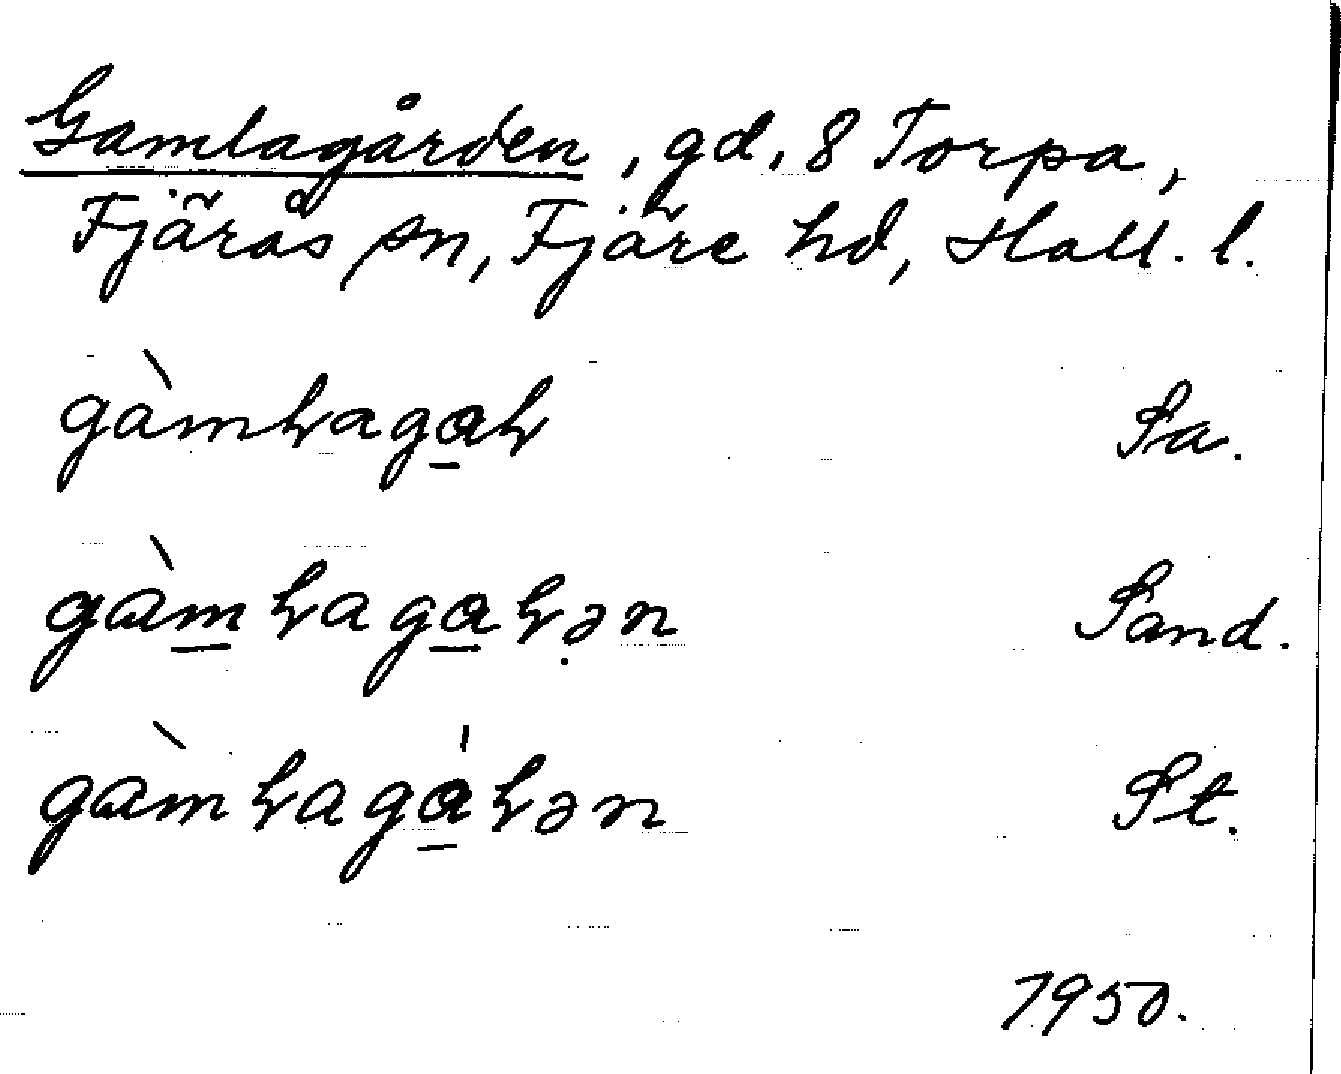 Gamlagården, gd, 8 Torpa,
Fjärås sn, Fjäre hd, Hall. l.
gàmꞎagaꞎ Sa.
gàmꞎagaꞎən Sand.
gàmꞎagaꞎən St.
1950.